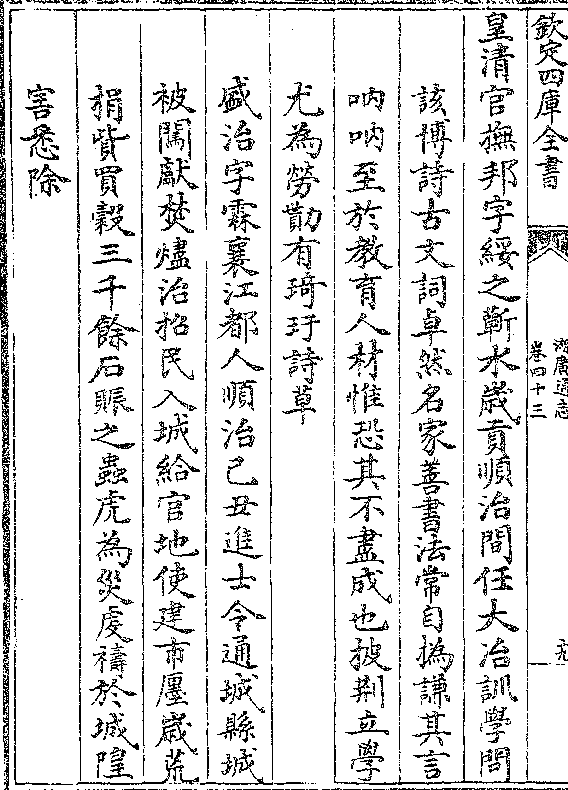 欽定四庫全書
湖廣通志
卷四十三
皇清官撫邦字綏之蘄水歲貢順治間任大冶訓學問
該博詩古文詞卓然名家善書法常自撝謙其言
吶吶至於教育人材惟恐其不盡成也披荆立學
尤為勞勩有琦玗詩草
盛治字霖襄江都人順治己丑進士令通城縣城
被闖獻焚燼治招民入城給官地使建市廛歲荒
捐貲買穀三千餘石賑之蟲虎為災虔禱於城隍
害悉除